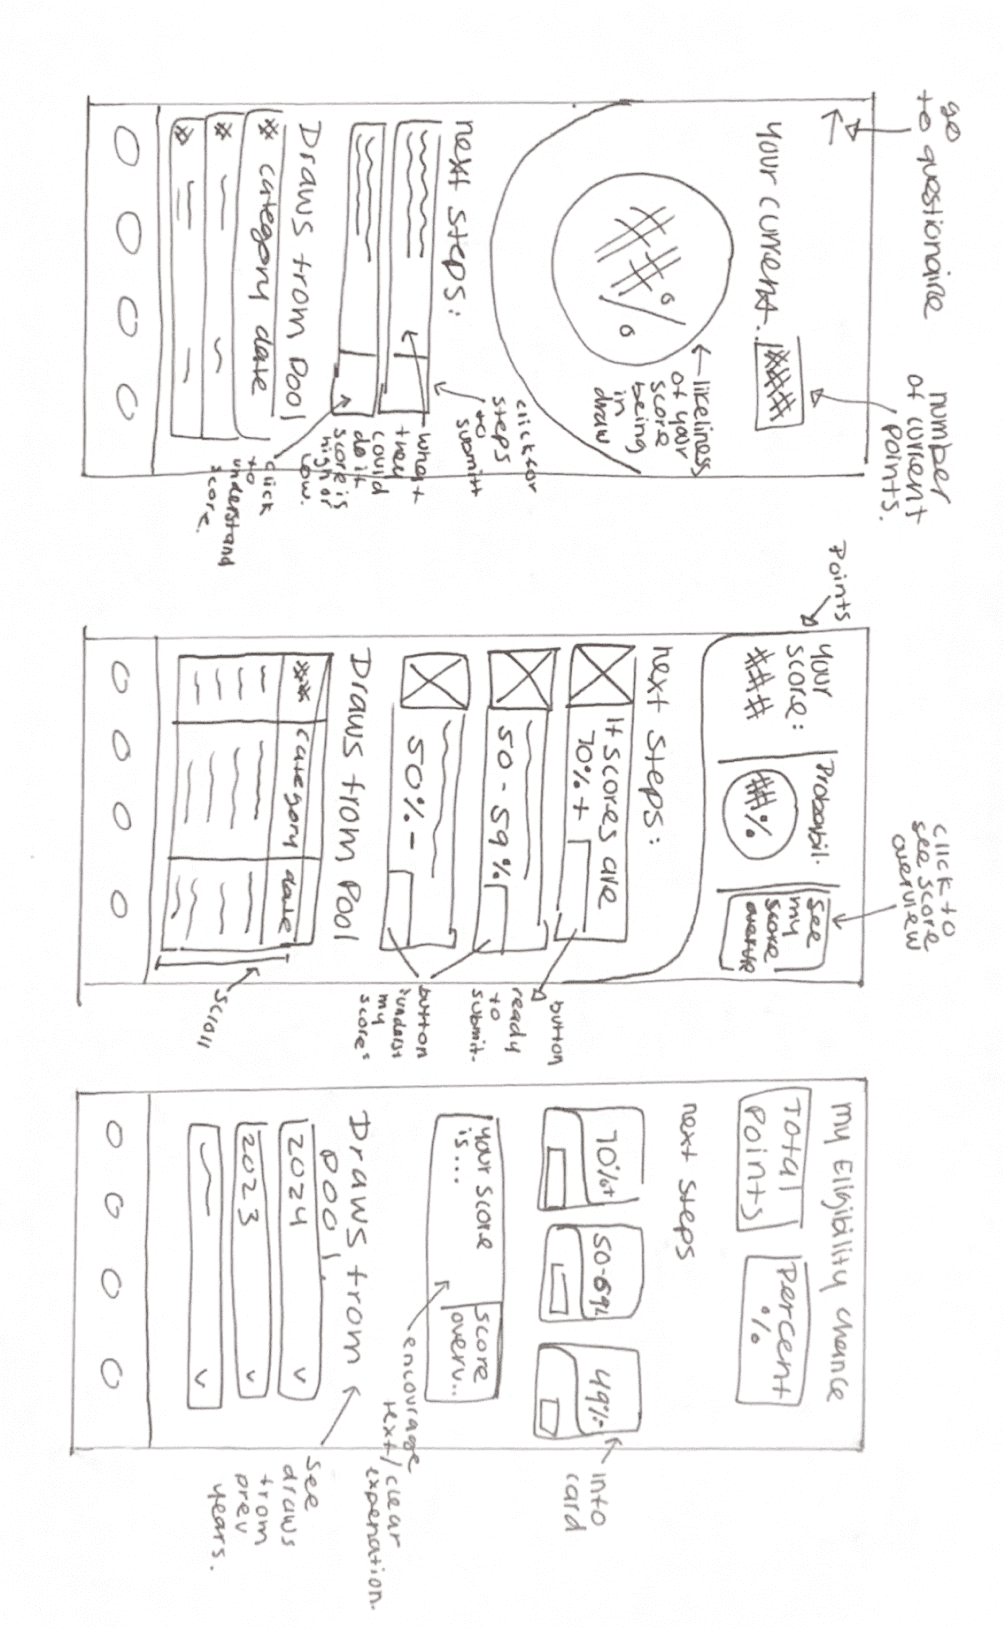 go
to questionaire
number
of current
points.
Your current.
###
##%
likeliness
of your
score
being
in
draw
next steps:
click for
steps
to
submitt
what
they
could
do if
score is
high or
low.
click
to
understand
score.
Draws from Pool
** category date
Points
click to
see score
overview
your
score:
###
Probabil.
##%
see
my
score
next steps:
If scores are
70% +
50 - 59%
50% -
button
ready
to
submit.
button
my
score:
Draws from Pool
** category date
scroll
my Eligibility chance
Total
Points
Percent
%
next steps
70%+
50-69%
49%-
into
card
your score
is...
score
overv..
encourage
text/clear
expenation.
Draws from
Pool.
2024
2023
see
draws
from
prev
years.